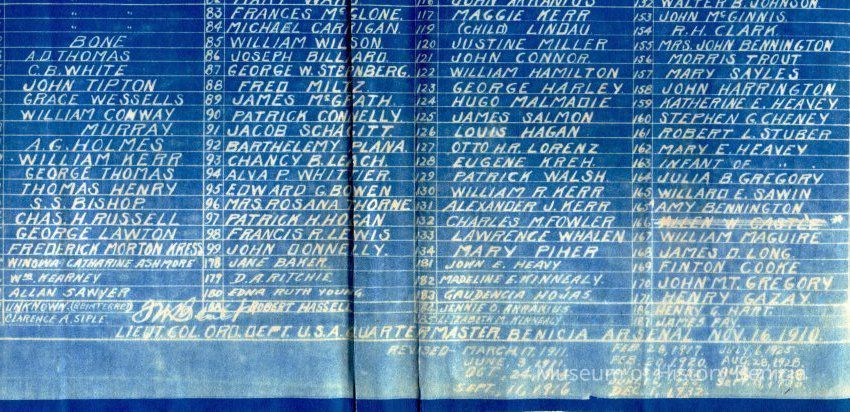 83 FRANCES McGLONE.
84 MICHAEL CARRIGAN.
BONE 85 WILLIAM WILSON.
A.D. THOMAS 86 JOSEPH BILLARD.
C.B. WHITE 87 GEORGE W. STERNBERG.
JOHN TIPTON 88 FRED MILTZ
GRACE WESSELLS 89 JAMES McGRATH.
WILLIAM CONWAY 90 PATRICK CONNELLY.
MURRAY. 91 JACOB SCHACITT.
A.G. HOLMES 92 BARTHELEMY PLANA
WILLIAM KERR 93 CHANCY B. LEACH.
GEORGE THOMAS 94 ALVA P. WHITTIER
THOMAS HENRY 95 EDWARD G. BOWEN
S.S. BISHOP 96 MRS. ROSANA THORNE
CHAS. H. RUSSELL 97 PATRICK H. HOGAN
GEORGE LAWTON 98 FRANCIS R. LEWIS
FREDERICK MORTON KRESS 99 JOHN DONNELLY.
WINOWA CATHARINE ASHMORE 178 JANE BAKER
WM. KEARNEY 179 D.A. RITCHIE
ALLAN SAWYER 180 EDNA RUTH YOUNG
UNKNOWN (REINTERRED) ROBERT HASSELL
CLARENCE A. SIPLE
117 MAGGIE KERR
119 (CHILD) LINDAU
120 JUSTINE MILLER
121 JOHN CONNOR.
122 WILLIAM HAMILTON
123 GEORGE HARLEY
124 HUGO MALMADIE
125 JAMES SALMON
126 LOUIS HAGAN
127 OTTO H.R. LORENZ
128 EUGENE KREH.
129 PATRICK WALSH.
130 WILLIAM R. KERR
131 ALEXANDER J. KERR
132 CHARLES M. FOWLER
133 LAWRENCE WHALEN
134 MARY PIHER
181 JOHN E. HEAVY
182 MADELINE E. KINNERALY.
183 GAUDENCIA HOJAS
184 JENNIE O. ARRANIUS
152 WALTER B. JOHNSON
153 JOHN McGINNIS.
154 R.H. CLARK.
155 MRS. JOHN BENNINGTON
156 MORRIS TROUT
157 MARY SAYLES
158 JOHN HARRINGTON
159 KATHERINE E. HEAVEY.
160 STEPHEN G. CHENEY
161 ROBERT L. STUBER
162 MARY E. HEAVEY
163 INFANT OF " "
164 JULIA B. GREGORY
165 WILLARD E. SAWIN
AMY BENNINGTON
167 WILLIAM MAGUIRE
168 JAMES D. LONG.
169 FINTON COOKE
170 JOHN M.T. GREGORY
171 HENRY GAZAY.
186 HENRY G. HART.
187 JAMES FAY.
LIEUT. COL. ORD. DEPT. U.S.A. QUARTERMASTER BENICIA ARSENAL NOV. 16, 1910.
REVISED- MARCH 17, 1911.
JUNE 3, 1911.
OCT. 24,
SEPT. 11, 1916
FEB. 20, 1920.
DEC. 1, 1932
Museum of History Benicia